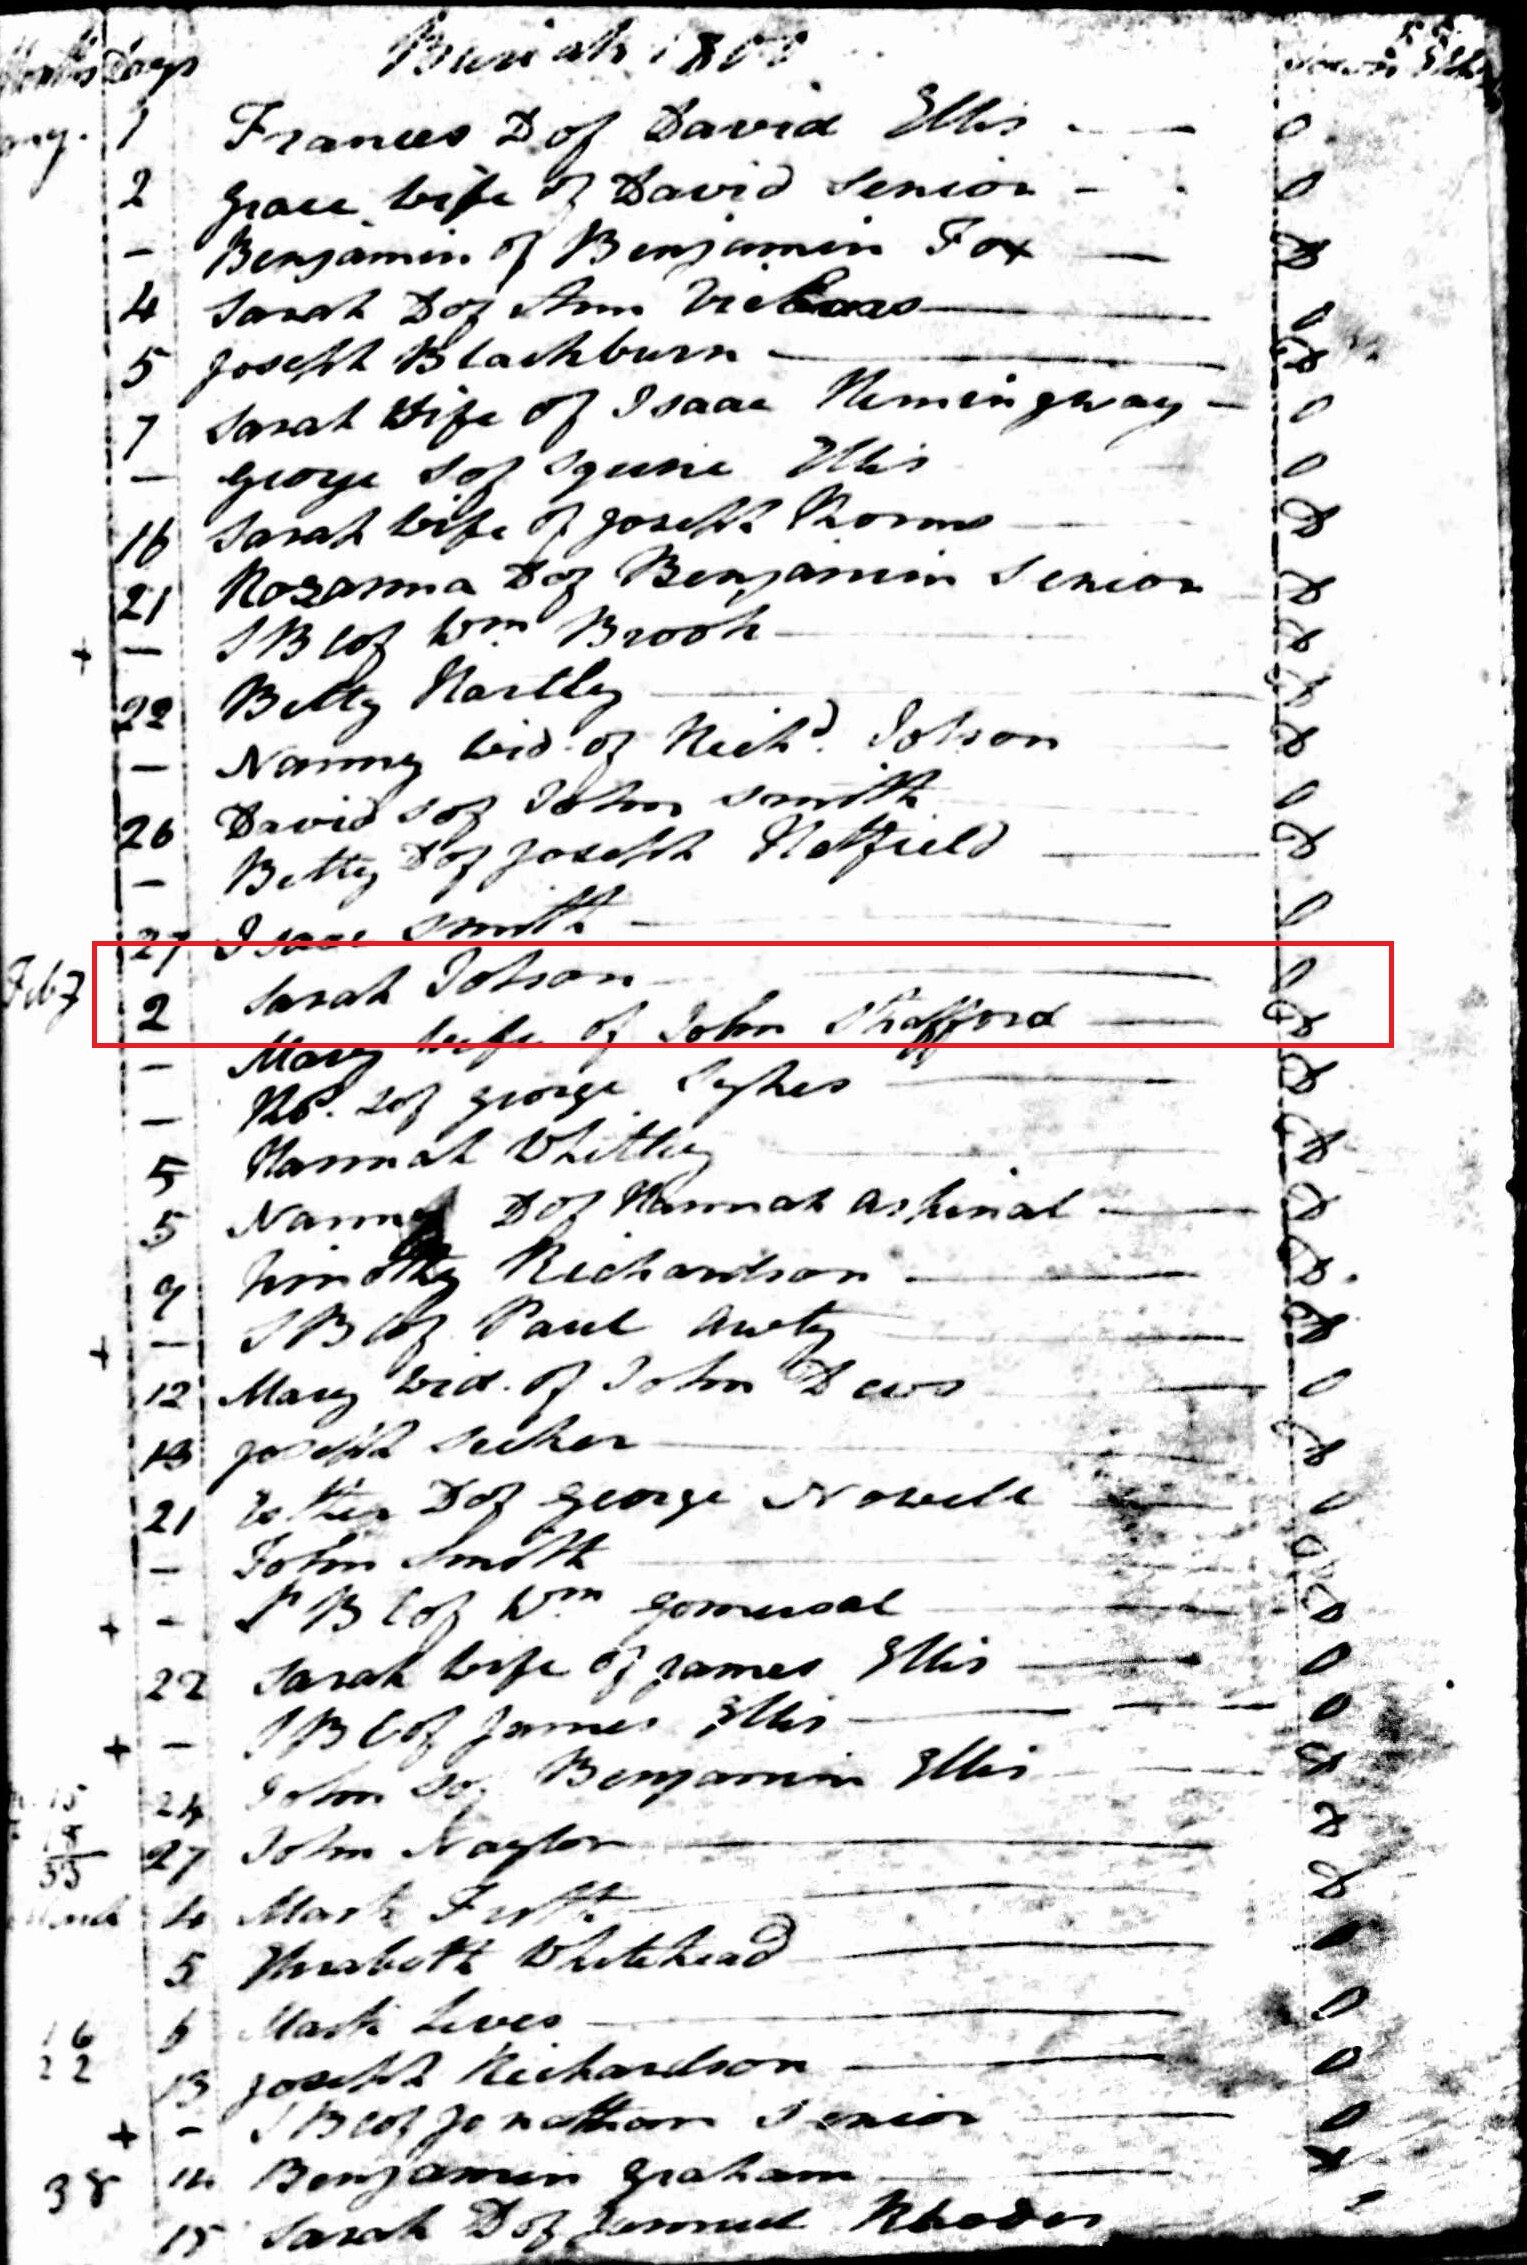 Months Days Burials 180
1 Frances D of David Ellis
2 Grace wife of David Senior
Benjamin of Benjamin Fox
4 Sarah D of Ann
5 Joseph Blackburn
7 Sarah Wife of Isaac Hemingway
George S of Squire Ellis
16 Sarah wife of Joseph
21 Rosanna D of Benjamin Senior
+ SB C of Wm Brook
22 Betty Hartley
Nanny wid. of Richd. Jotson
26 David S of John Smith
Betty D of Joseph Hatfield
27 Isaac Smith
Feby 2 Sarah Jotson
Mary wife of John Stafford
Ro. S of George Sykes
5 Hannah Whitley
5 Nanny D of Hannah Aspinal
9 Timothy Richardson
+ SB C of Paul Awty
12 Mary wid. of John Dews
13 Joseph Secker
21 Esther D of George Nowell
John Smith
+ SB C of Wm Gomersal
22 Sarah wife of James Ellis
+ SB C of James Ellis
24 John So Benjamin Ellis
27 John Naylor
Mark Firth
5 Whitehead
6 Mark Lives
13 Joseph Richardson
+ SB C of Jonathan Senior
38 14 Benjamin Graham
15 Sarah D of Samuel Rhodes